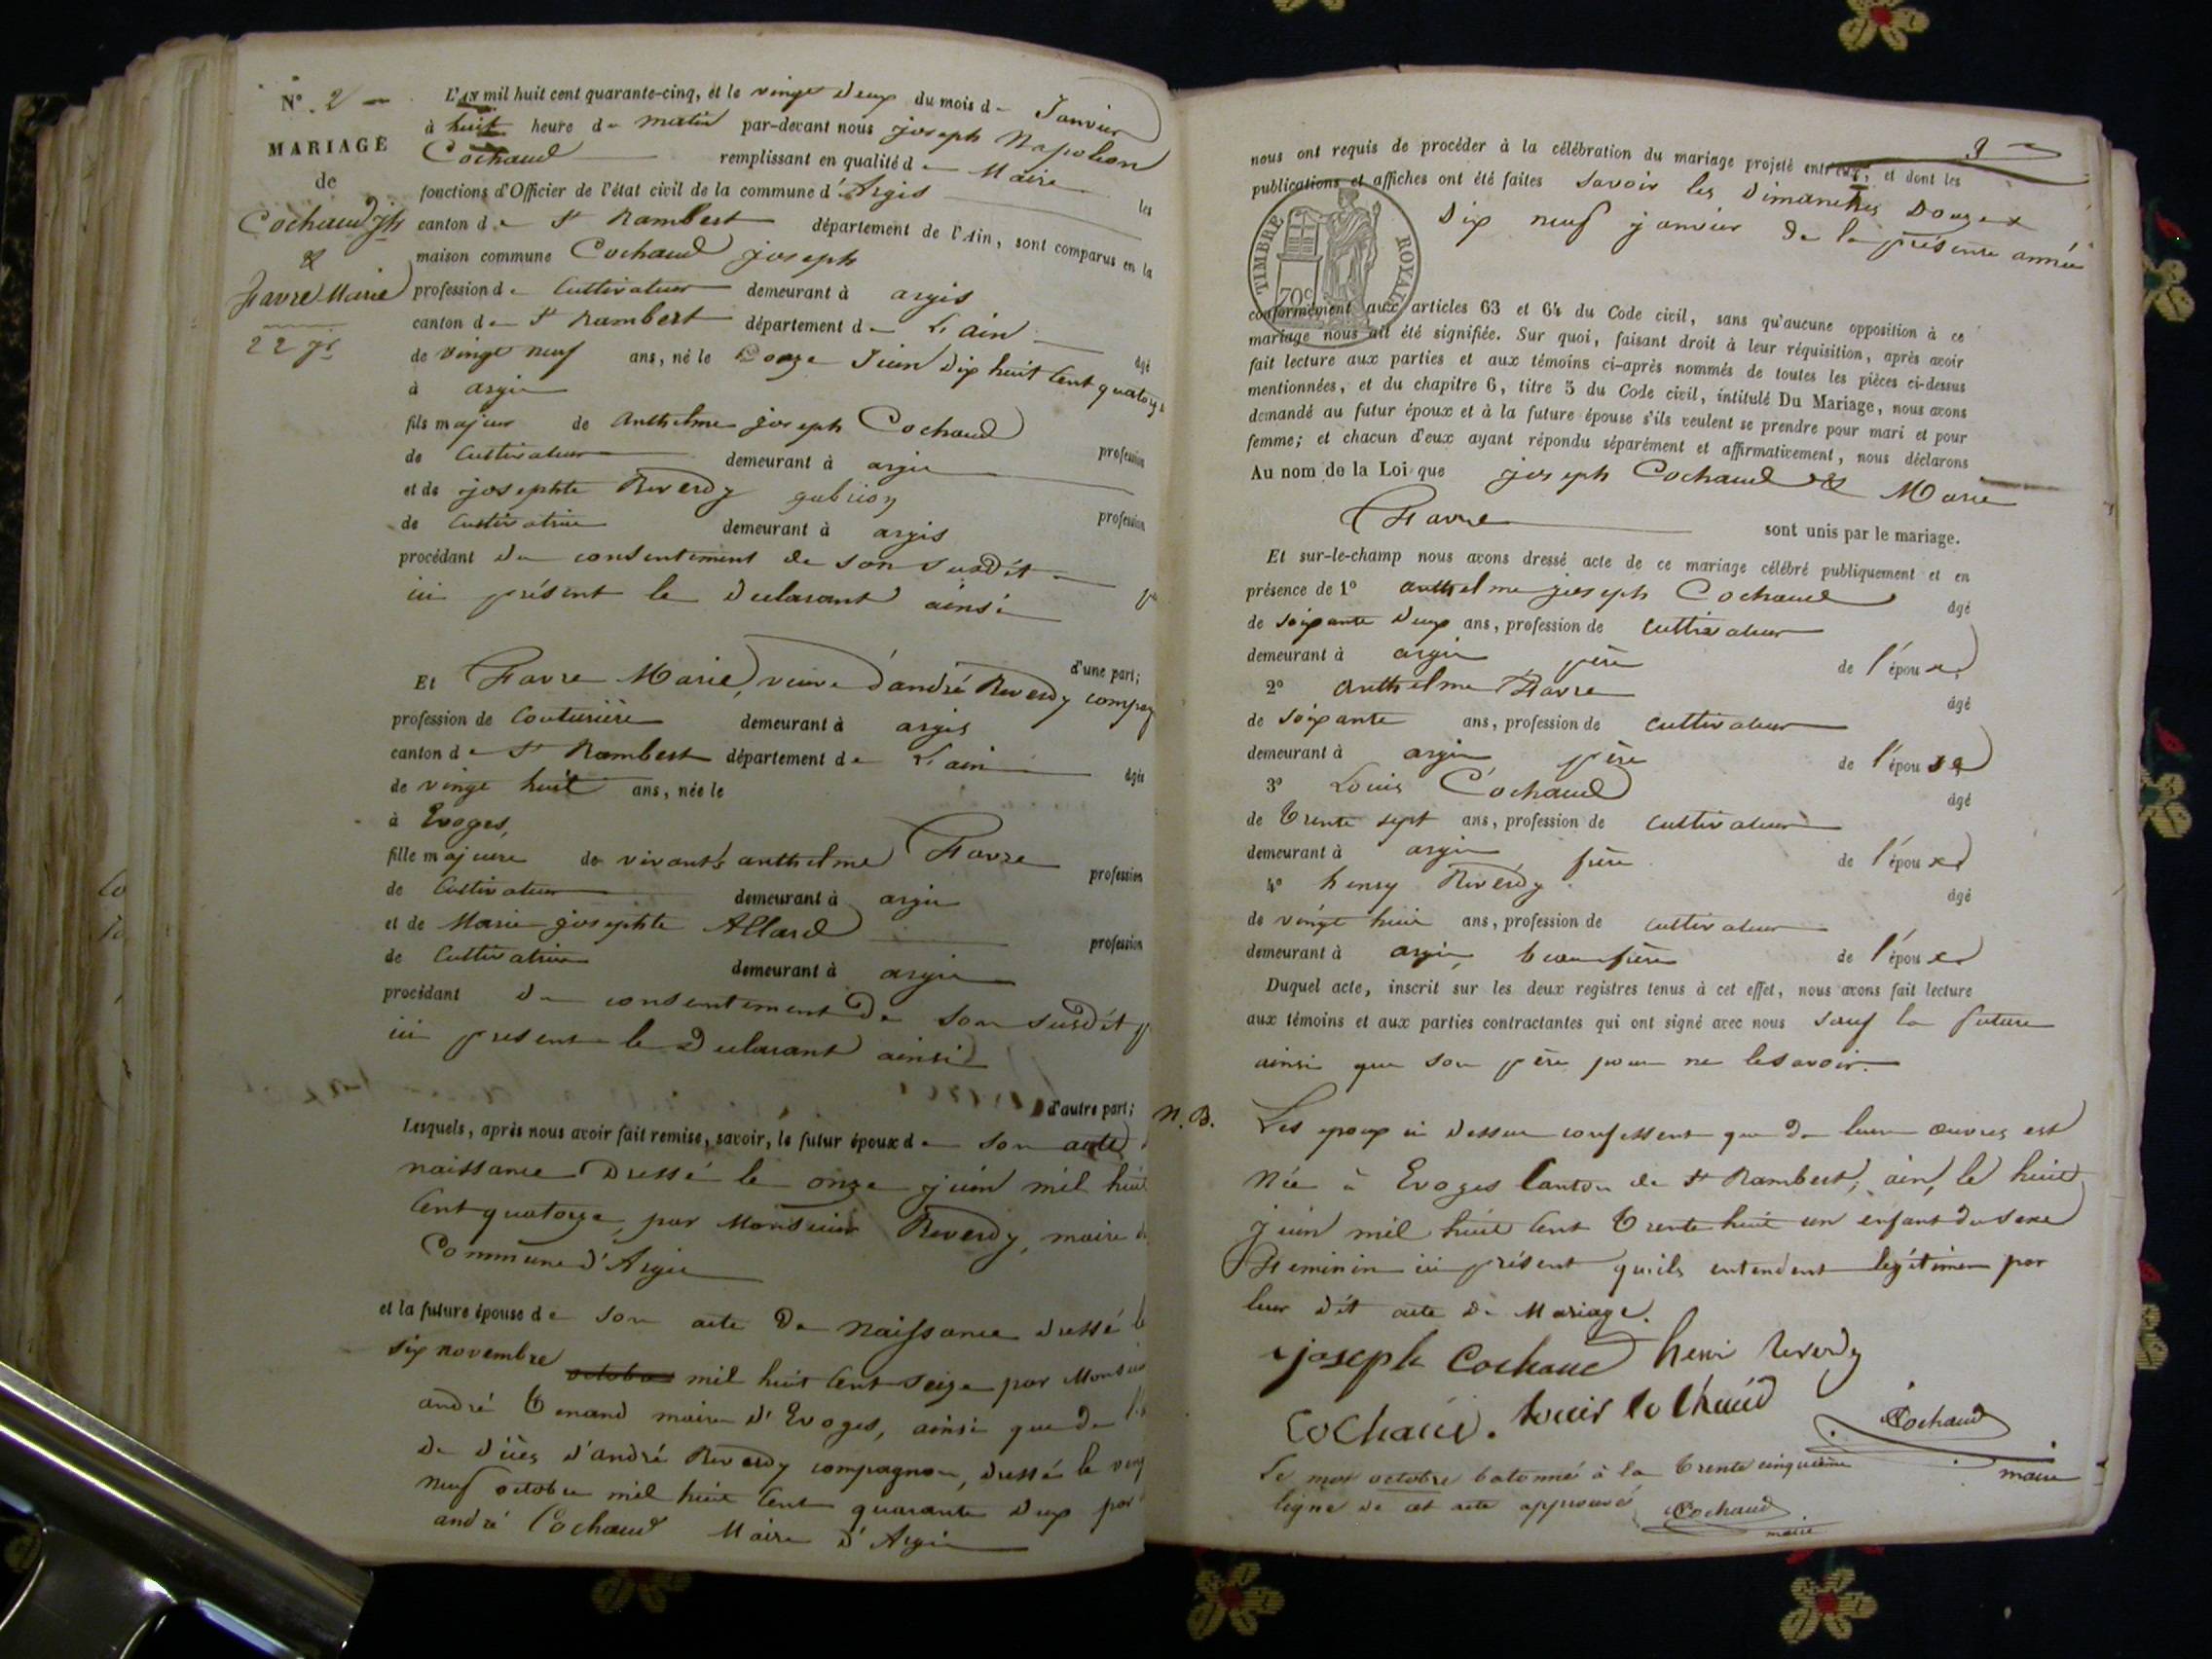 N° 2
MARIAGE
de
Cochaud Jh
&
Favre Marie
22 jr
L'AN mil huit cent quarante-cinq, et le vingt deux du mois de Janvier
à huit heure de matin par-devant nous joseph Napoléon
Cochaud remplissant en qualité de Maire les
fonctions d'Officier de l'état civil de la commune d'Argis
canton de St Rambert département de l'Ain, sont comparus en la
maison commune Cochaud joseph
profession de Cultivateur demeurant à argis
canton de St Rambert département de L'ain âgé
de vingt neuf ans, né le Douze Juin dix huit Cent quatorze
à argis
fils majeur de anthelme joseph Cochaud profession
de Cultivateur demeurant à argis
et de josephte Reverdy gabrion profession
de Cultivatrice demeurant à argis
procédant du consentement de son susdit
ici présent le déclarant ainsi
d'une part;
Et Favre Marie, veuve d'andré Reverdy compag
profession de Couturière demeurant à argis
canton de St Rambert département de L'ain âgée
de vingt huit ans, née le
à Evoges,
fille majeure de vivants anthelme Favre profession
de Cultivateur demeurant à argis
et de Marie josephte Allard profession
de Cultivatrice demeurant à argis
procédant du consentement de son susdit p
ici présent le Déclarant ainsi
d'autre part;
Lesquels, après nous avoir fait remise, savoir, le futur époux de son acte
naissance Dressé le onze juin mil huit
Cent quatorze, par Monsieur Reverdy, maire d
Commune d'Argis
et la future épouse de son acte De Naissance dressé le
six novembre octobre mil huit Cent seize par Monsieur
andré Tenand maire d'Evoges, ainsi que de l'a
De décès d'andré Reverdy compagnon, dressé le ving
neuf octobre mil huit Cent quarante deux par
andré Cochaud Maire d'Argis
9
nous ont requis de procéder à la célébration du mariage projeté entr'eux, et dont les
publications et affiches ont été faites savoir les Dimanches Douze &
Dix neuf janvier de la présente année
TIMBRE ROYAL
70c
conformément aux articles 63 et 64 du Code civil, sans qu'aucune opposition à ce
mariage nous ait été signifiée. Sur quoi, faisant droit à leur réquisition, après avoir
fait lecture aux parties et aux témoins ci-après nommés de toutes les pièces ci-dessus
mentionnées, et du chapitre 6, titre 5 du Code civil, intitulé Du Mariage, nous avons
demandé au futur époux et à la future épouse s'ils veulent se prendre pour mari et pour
femme; et chacun d'eux ayant répondu séparément et affirmativement, nous déclarons
Au nom de la Loi que joseph Cochaud & Marie
Favre sont unis par le mariage.
Et sur-le-champ nous avons dressé acte de ce mariage célébré publiquement et en
présence de 1° anthelme joseph Cochaud âgé
de soixante deux ans, profession de Cultivateur
demeurant à argis père de l'époux
2° anthelme Favre âgé
de soixante ans, profession de cultivateur
demeurant à argis père de l'épouse
3° Louis Cochaud âgé
de Trente sept ans, profession de cultivateur
demeurant à argis frère de l'époux
4° henry Reverdy âgé
de vingt huit ans, profession de cultivateur
demeurant à argis, beau frère de l'époux
Duquel acte, inscrit sur les deux registres tenus à cet effet, nous avons fait lecture
aux témoins et aux parties contractantes qui ont signé avec nous sauf la future
ainsi que son père pour ne le savoir.
N.B. Les époux ci dessus confessent que de leurs œuvres est
Née à Evoges Canton de St Rambert, ain, le huit
juin mil huit Cent Trente huit un enfant du sexe
Féminin ici présent qu'ils entendent légitimer par
leur dit acte de Mariage.
joseph Cochaud henri Reverdy
Cochaud. Louis Cochaud
Cochaud
maire
Le mot octobre batonné à la Trente cinquième
ligne de cet acte approuvé Cochaud
maire